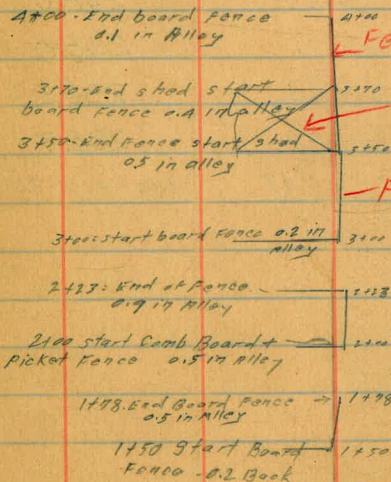 4+00 - End board Fence 4+00
0.1 in Alley
FE
3+70 - End shed start 3+70
board Fence 0.4 in alley
3+50 - End Fence start shed 3+50
0.5 in alley
F
3+00: start board Fence 0.2 in 3+00
Alley
2+23: End of Fence 2+23
0.9 in Alley
2+00 start Comb Board + 2+00
Picket Fence 0.5 in Alley
1+78. End Board Fence → 1+78
0.5 in Alley
1+50 Start Board 1+50
Fence - 0.2 Back